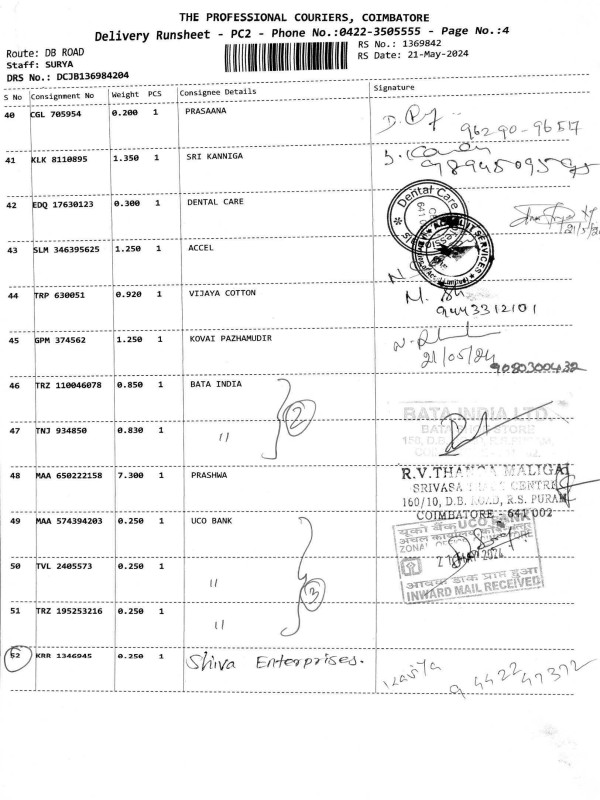 THE PROFESSIONAL COURIERS, COIMBATORE
Delivery Runsheet - PC2 - Phone No.:0422-3505555 - Page No.:4
Route: DB ROAD
RS No.: 1369842
Staff: SURYA
RS Date: 21-May-2024
DRS No.: DCJB136984204
S No Consignment No Weight PCS Consignee Details Signature
40 CGL 705954 0.200 1 PRASAANA
96290-9657
41 KLK 8110895 1.350 1 SRI KANNIGA
42 EDQ 17630123 0.300 1 DENTAL CARE
Dental Care
43 SLM 346395625 1.250 1 ACCEL
44 TRP 630051 0.920 1 VIJAYA COTTON
9443312101
45 GPM 374562 1.250 1 KOVAI PAZHAMUDIR
21/05/24
9080300432
46 TRZ 110046078 0.850 1 BATA INDIA
2
BATA INDIA LTD.
47 TNJ 934850 0.830 1 "
48 MAA 650222158 7.300 1 PRASHWA
R.V.THANGA MALIGAI
CENTRE
160/10, D.B. ROAD, R.S. PURAM
COIMBATORE - 641 002
49 MAA 574394203 0.250 1 UCO BANK
यूको बैंक UCO BANK
50 TVL 2405573 0.250 1 "
3
2 MAY 2024
51 TRZ 195253216 0.250 1 "
आवक डाक प्राप्त हुआ
INWARD MAIL RECEIVED
52 KRR 1346945 0.250 1 Shiva Enterprises.
Kavya
9442247372